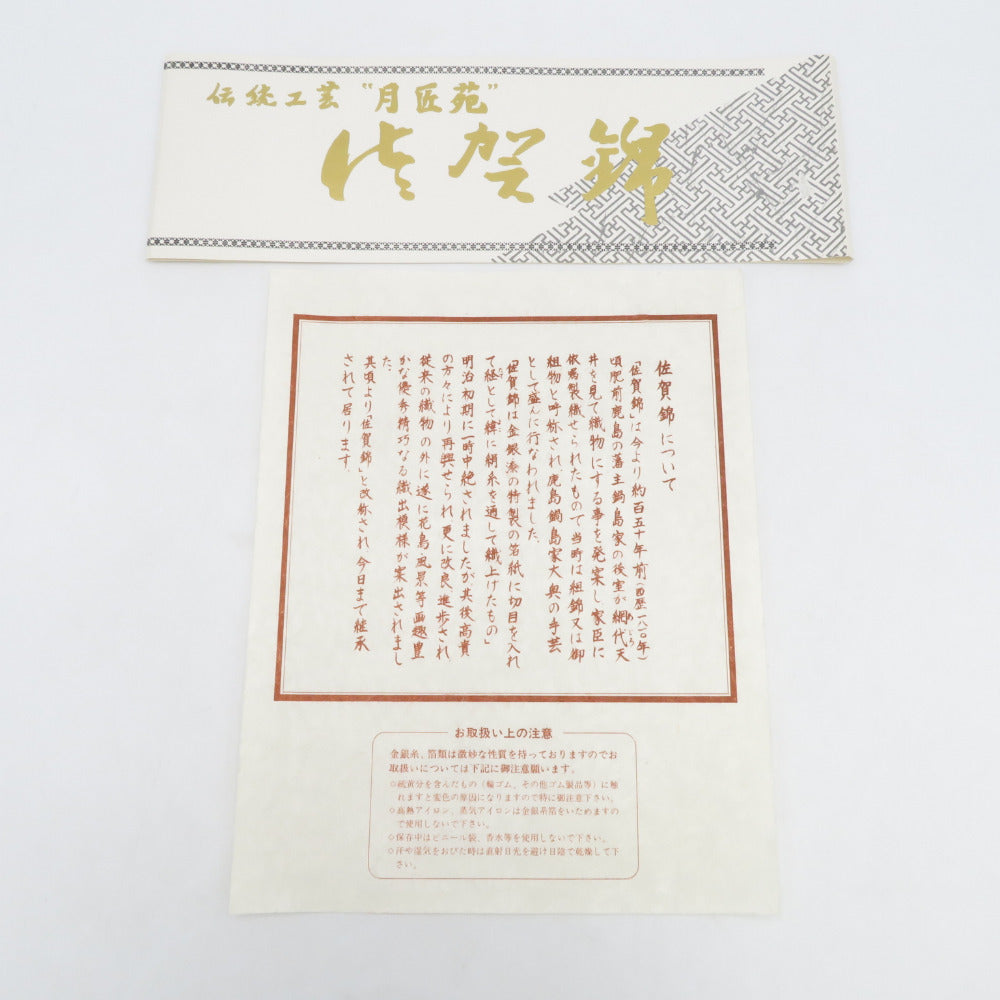 伝統工芸“月匠苑”
佐賀錦
佐賀錦について
「佐賀錦」は今より約百五十年前(西歴一八二〇年)
頃肥前鹿島の藩主鍋島家の後室が網代天
井を見て織物にする事を発案し家臣に
依嘱製織せられたもので当時は組錦又は御
組物と呼称され鹿島鍋島家大奥の手芸
として盛んに行なわれました。
「佐賀錦は金銀漆の特製の箔紙に切目を入れ
て経として緯に絹糸を通して織上げたもの」
明治初期に一時中絶されましたが其後高貴
の方々により再興せられ、更に改良進歩され
従来の織物の外に遂に花鳥、風景等画趣豊
かな優秀精巧なる織出模様が案出されまし
た。
其頃より「佐賀錦」と改称され、今日まで継承
されて居ります。
お取扱い上の注意
金銀糸、箔類は微妙な性質を持っておりますのでお
取扱いについては下記に御注意願います。
○硫黄分を含んだもの(輪ゴム、その他ゴム製品等)に触
れますと変色の原因になりますので特に御注意下さい。
○高熱アイロン、蒸気アイロンは金銀糸箔をいためますの
で使用しないで下さい。
○保存中はビニール袋、香水等を使用しないで下さい。
○汗や湿気をおびた時は直射日光を避け日陰で乾燥して下
さい。